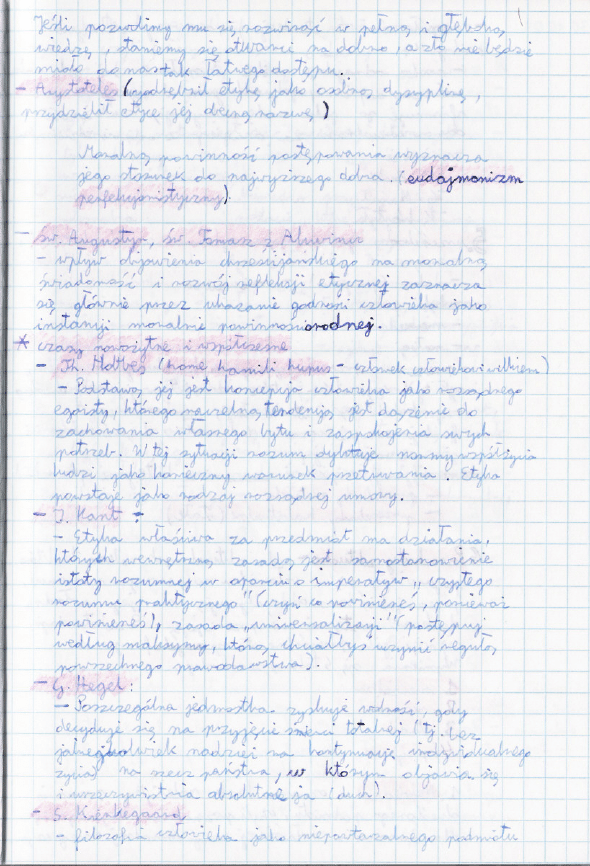 Jeśli pozwolimy mu się rozwinąć w pełną i głęboką
wiedzę, staniemy się otwarci na dobro, a zło nie będzie
miało do nas tak łatwego dostępu.
- Arystoteles (wyodrębnił etykę jako osobną dyscyplinę,
przydzielił etyce jej drugą nazwę)
Moralną powinność postępowania wyznacza
jego stosunek do najwyższego dobra. (eudajmonizm
perfekcjonistyczny).
- św. Augustyn, św. Tomasz z Akwinu
- wpływ objawienia chrześcijańskiego na moralną
świadomość i rozwój refleksji etycznej zaznacza
się głównie przez ukazanie godności człowieka jako
instancji moralnie powinnościorodnej.
* czasy nowożytne i współczesne
- Th. Hobbes (homo homini lupus - człowiek człowiekowi wilkiem)
- Podstawą jej jest koncepcja człowieka jako rozsądnego
egoisty, którego naczelną tendencją jest dążenie do
zachowania własnego bytu i zaspokojenia swych
potrzeb. W tej sytuacji rozum dyktuje normy współżycia
ludzi jako konieczny warunek przetrwania. Etyka
powstaje jako rodzaj rozsądnej umowy.
- J. Kant:
- Etyka właściwa za przedmiot ma działania,
których wewnętrzną zasadą jest samostanowienie
istoty rozumnej w oparciu o imperatyw „czystego
rozumu praktycznego" (czyń co powinieneś, ponieważ
powinieneś), zasada „uniwersalizacji" (postępuj
według maksymy, którą chciałbyś uczynić regułą
powszechnego prawodawstwa).
- G. Hegel:
- Poszczególna jednostka zyskuje wolność, gdy
decyduje się na przyjęcie śmierci totalnej (tj. bez
jakiejkolwiek nadziei na kontynuację indywidualnego
życia) na rzecz państwa, w którym objawia się
i urzeczywistnia absolutne ja (duch).
- S. Kierkegaard
- filozofia człowieka jako niepowtarzalnego podmiotu